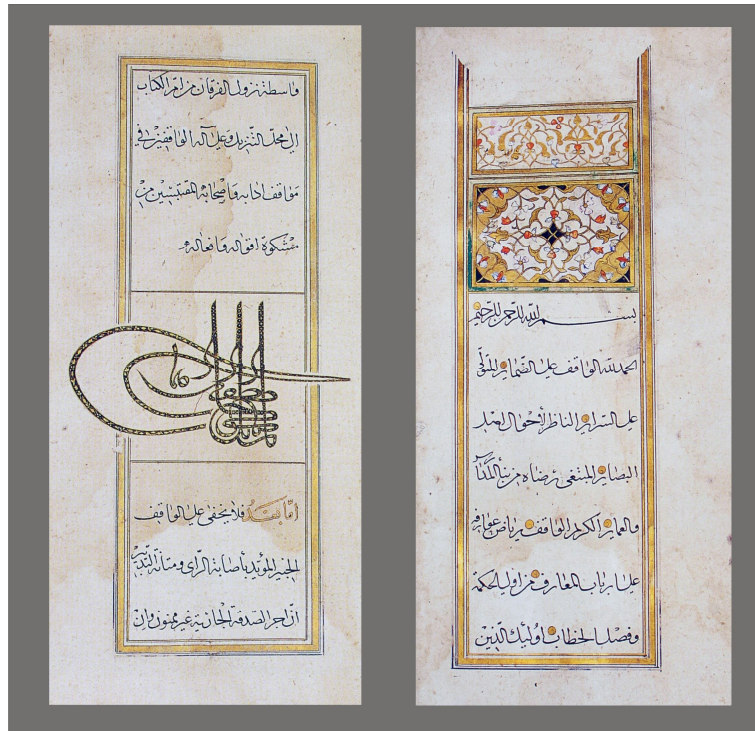 بسم الله الرحمن الرحيم
الحمد لله الواقف على الضمائر المتولى
على السرائر الناظر لأحوال اهل
البصائر المبتغى رضاه من بناء
والعمائر الكرم الواقف رياض عوارفه
على ارباب المعارف من اولى الحكمة
وفصل الخطاب اولئك الذين
واسطة نزول الفرقان من ام الكتاب
الى محل التنزيل وعلى آله الواقفين فى
مواقف ادابه واصحابه المقتبسين من
مشكوة اقواله وافعاله
اما بعد فلا يخفى على الواقف
الخبير المؤيد باصابة الراى ومتانة التدبير
ان اجر الصدقة الجارية غير ممنون وان